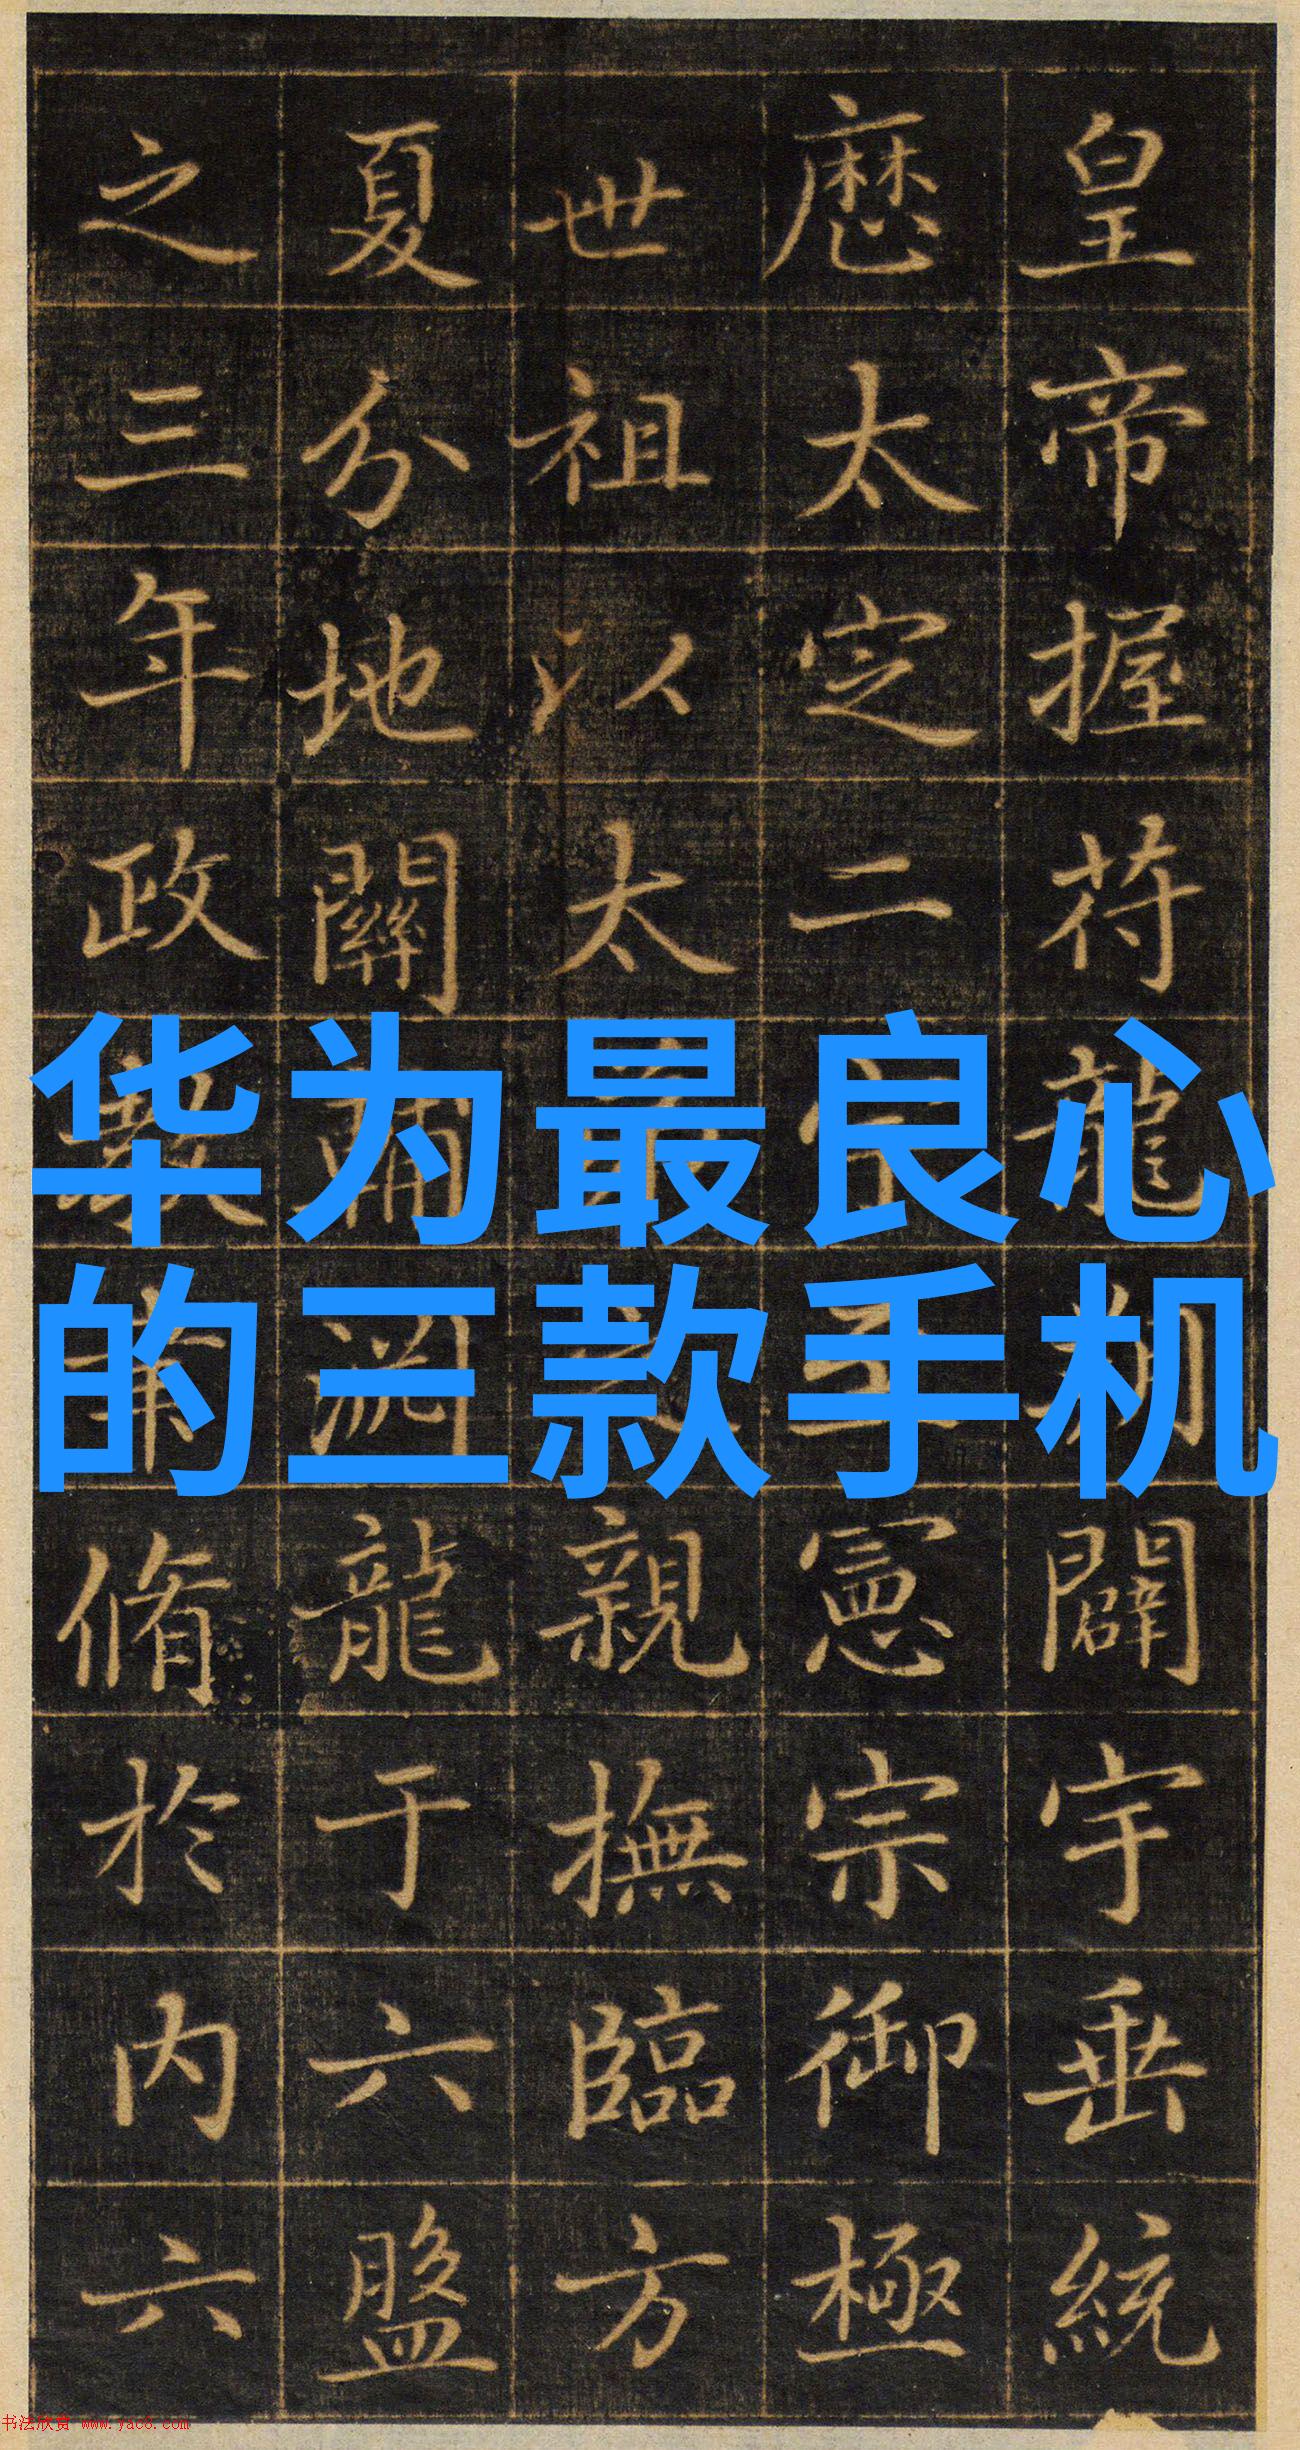 皇帝握符龍闢宇垂統
厯太定二憲宗御極
世祖以太之親撫臨方
夏分地關輔龍于六盤
之三年政教脩於内六
华为最良心
的三款手机
书法欣赏 www.yac8.com